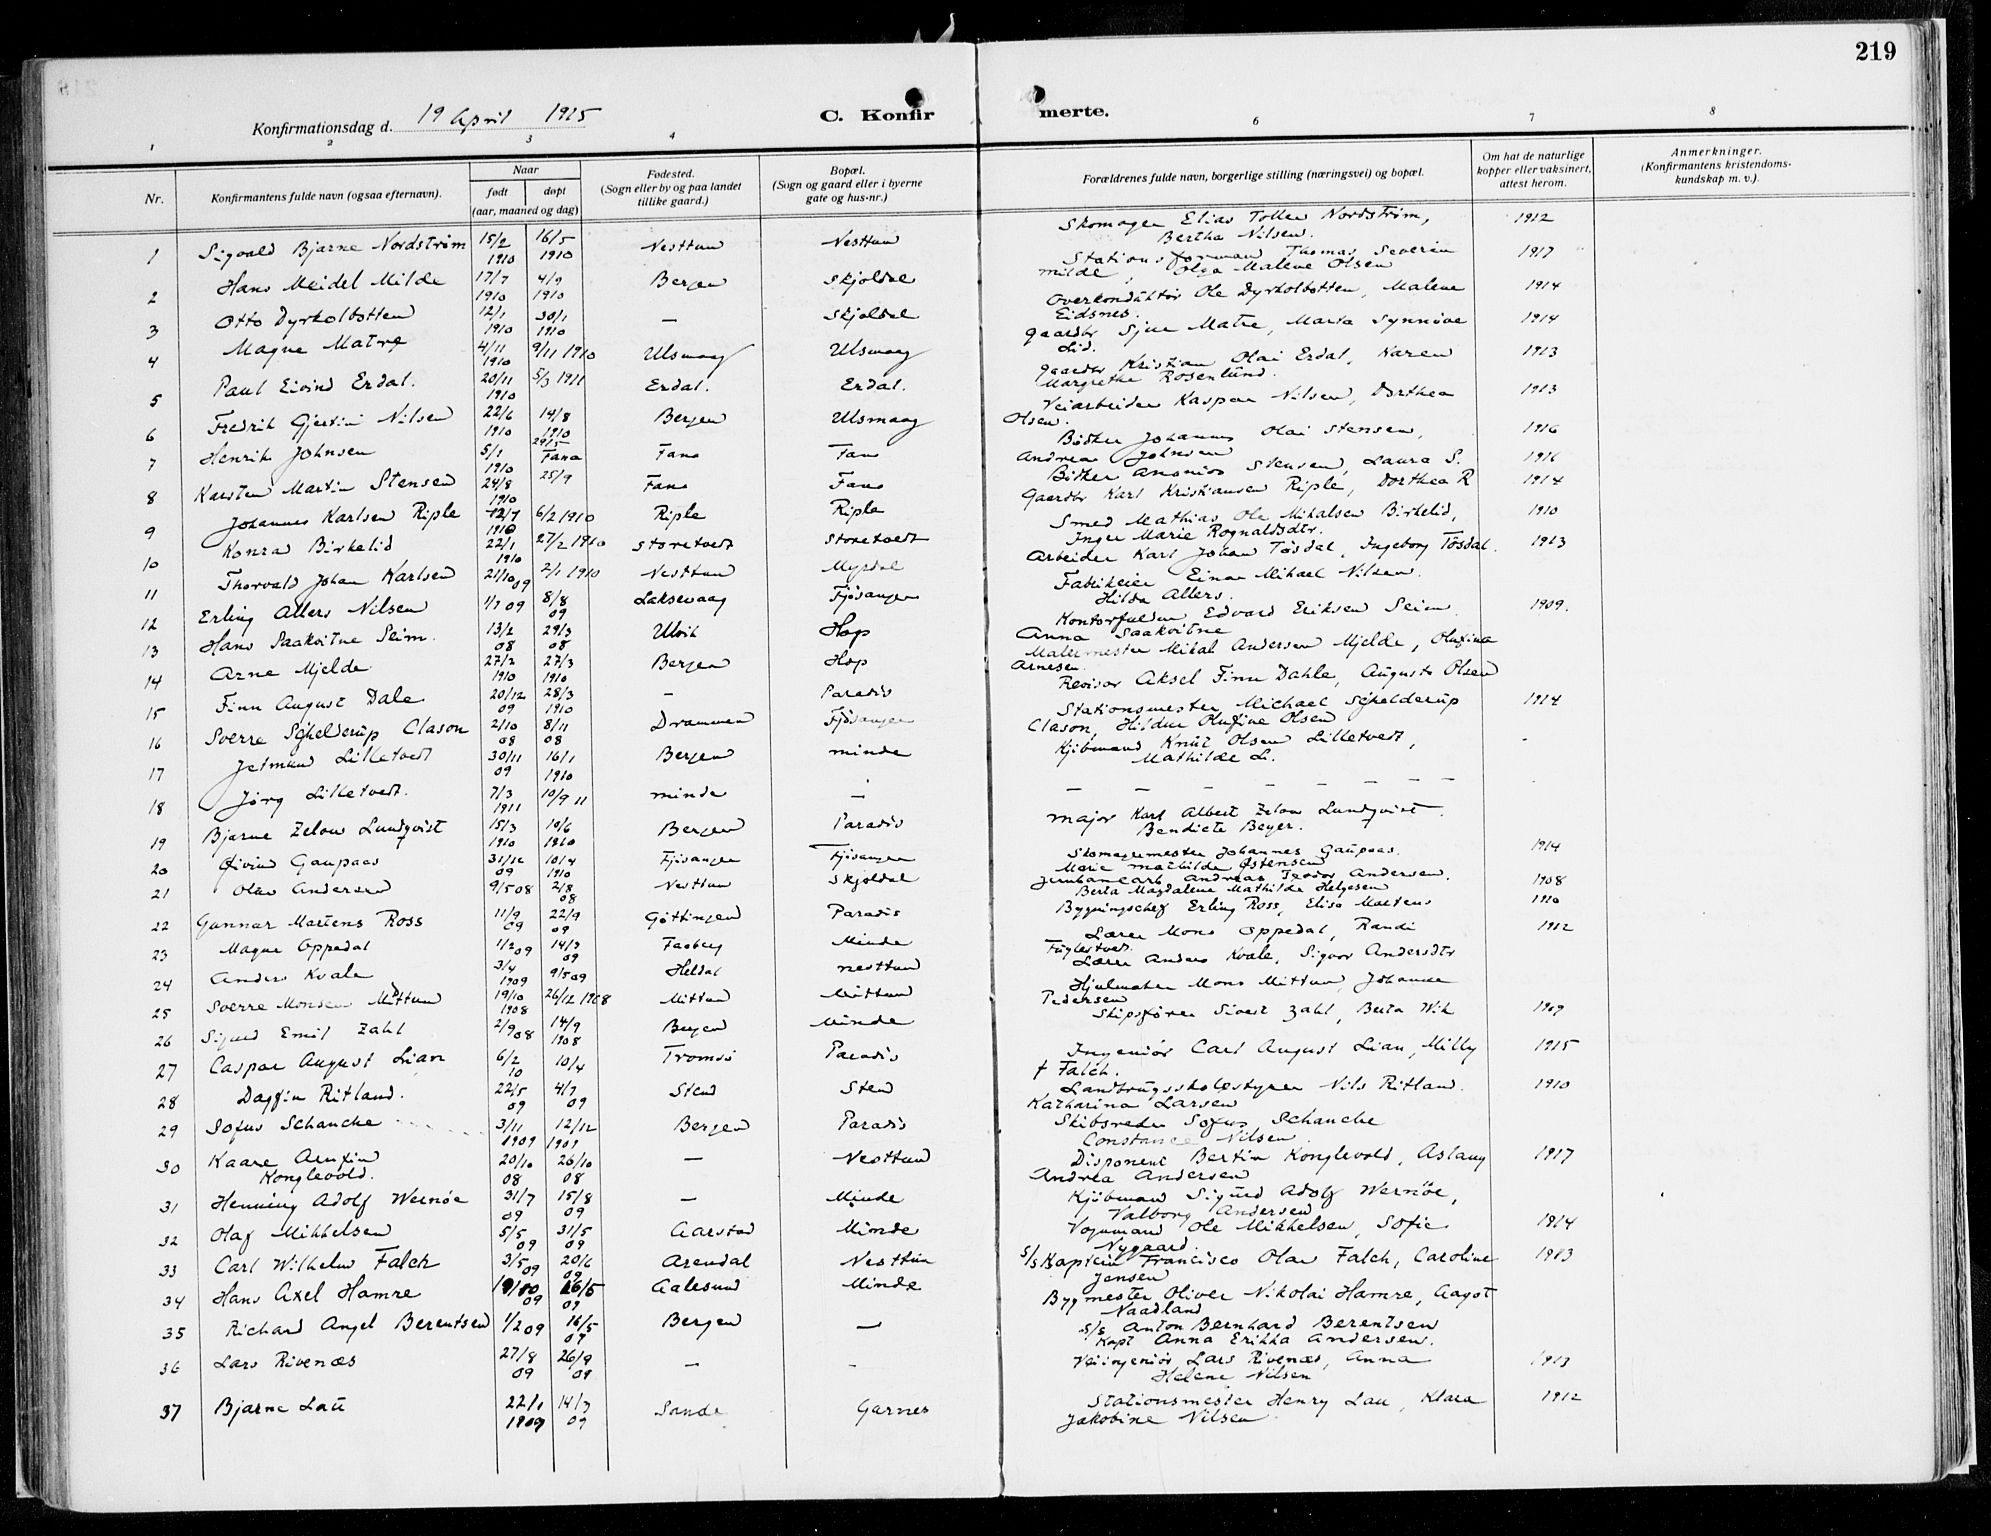 219
Konfirmationsdag d. 19 April 1925
C. Konfirmerte.
1 2 3 4 6 7 8
Nr.
Konfirmantens fulde navn (ogsaa efternavn).
Naar
født døpt
(aar, maaned og dag)
Fødested.
(Sogn eller by og paa landet
tillike gaard.)
Bopæl.
(Sogn og gaard eller i byerne
gate og hus-nr.)
Forældrenes fulde navn, borgerlige stilling (næringsvei) og bopæl.
Om hat de naturlige
kopper eller vaksinert,
attest herom.
Anmerkninger.
(Konfirmantens kristendoms-
kundskap m. v.).
1 Sigvald Bjarne Nordstrøm 15/2 1910 16/5 1910 Nesttun Nesttun Skomager Elias Toller Nordstrøm, 1912
Bertha Nilsen.
2 Hans Meidel Milde 17/7 1910 4/9 1910 Bergen Skjoldal Stationsforman Thomas Severin 1917
Milde, Olga Malene Olsen
3 Otto Dyrkolbotten 12/1 1910 30/1 1910 — Skjoldal Overkonduktør Ole Dyrkolbotten, Malene 1914
Eidsnes.
4 Magne Matre 4/11 1910 9/11 1910 Ulsmaag Ulsmaag Gaardbr Sjur Matre, Marta Synnøve 1914
Lid.
5 Paul Eivind Erdal. 20/11 1910 5/3 1911 Erdal. Erdal. Gaardbr Kristian Olai Erdal, Karen 1913
Margrethe Rosenlund.
6 Fredrik Gjertin Nilsen 22/6 1910 14/8 1910 Bergen Ulsmaag Veiarbeider Kaspar Nilsen, Dorthea 1913
Olsen.
7 Henrik Johnsen 5/1 1910 29/5 Fana Fana Fana Bøtker Johannes Olai Stensen, 1916
Andrea Johnsen
8 Karsten Martin Stensen 24/8 1910 25/9 Fana Fana Bøtker Ananias Stensen, Laura S. 1916
9 Johannes Karlsen Riple 12/7 1910 6/2 1910 Riple Riple Gaardbr Karl Kristiansen Riple, Dorthea R 1914
10 Konrad Birkelid 22/1 1910 27/2 1910 Storetvedt Storetvedt Smed Mathias Ole Mikalsen Birkelid, 1910
Inger Marie Rognaldsdtr.
11 Thorvald Johan Karlsen 21/10 09 2/1 1910 Nesttun Myrdal Arbeider Karl Johan Tøsdal, Ingeborg Tøsdal. 1913
12 Erling Allers Nilsen 1/7 09 8/8 09 Laksevaag Fjøsanger Fabrikeier Einar Mikael Nilsen.
Hilda Allers.
13 Hans Saakvitne Seim. 13/2 08 29/3 08 Ulvik Hop Kontorfuldm Edvard Eriksen Seim. 1909.
Anna Saakvitne
14 Arne Mjelde 27/2 1910 27/3 1910 Bergen Hop Malermester Mikal Andersen Mjelde, Olufina
Arnesen.
15 Finn August Dale 20/12 09 28/3 1910 — Paradis Revisor Aksel Finn Dahle, Augusta Olsen
16 Sverre Schelderup Clason 2/10 08 8/11 08 Drammen Fjøsanger Stationsmester Michael Schelderup 1914
Clason, Hildur Olufine Olsen
17 Jetmund Lilletvedt 30/11 09 16/1 1910 Bergen Minde Kjøbmand Knut Olsen Lilletvedt,
Mathilde Li.
18 Jørg Lilletvedt. 7/3 1911 10/9 11 Minde — — — — — — — —
19 Bjarne Zelow Lundqvist 15/3 1910 10/6 1910 Bergen Paradis Major Karl Albert Zelow Lundqvist.
Bendicte Beyer.
20 Øivind Gaupaas 31/12 09 10/4 1910 Fjøsanger Fjøsanger Skomagermester Johannes Gaupaas. 1914
Marie Mathilde Østensen
21 Olav Andersen 9/5 08 2/8 08 Nesttun Skjoldal Jernbanearb Andreas Teodor Andersen. 1908
Berta Magdalene Mathilde Helgesen
22 Gunnar Martens Ross 11/9 09 22/9 09 Gøttingen Paradis Bygningschef Erling Ross, Elisa Martens 1910
23 Magne Oppedal 1/2 09 14/3 09 Faaberg Minde Lærer Mons Oppedal, Randi 1912
Fuglestvedt.
24 Anders Kvale 3/4 1909 9/5 09 Heldal Nesttun Lærer Anders Kvale, Sigvor Andersdtr
25 Sverre Monsen Mittun 19/10 1908 26/12 1908 Mittun Mittun Hjulmaker Mons Mittun, Johanna
Pedersen
26 Sigurd Emil Zahl 2/9 08 14/9 1908 Bergen Minde Skipsfører Sivert Zahl, Berta Wik 1909
27 Caspar August Lian 6/2 10 10/4 Tromsø Paradis Ingeniør Carl August Lian, Milly 1915
f Falch.
28 Dagfin Ritland. 22/5 09 4/7 09 Stend Sten Landbrugsskolestyrer Nils Ritland. 1910
Katharina Larsen
29 Sofus Schancke 3/11 1909 12/12 1909 Bergen Paradis Skibsreder Sofus Schancke
Constance Nilsen
30 Kaare Arnfin 20/10 08 26/10 08 — Nesttun Disponent Bertin Konglevold, Aslaug 1917
Konglevold. Andrea Andersen
31 Henning Adolf Wernøe 31/7 09 15/8 09 — Minde Kjøbmand Sigurd Adolf Wernøe,
Valborg Andersen
32 Olaf Mikkelsen 5/5 09 31/5 09 Aarstad Minde Vognmand Ole Mikkelsen, Sofie 1914
Nygaard.
33 Carl Wilhelm Falch 3/5 09 20/6 09 Arendal Nesttun S/s Kaptein Francisco Olav Falch, Caroline 1913
Jensen
34 Hans Axel Hamre 19/10 09 16/5 09 Aalesund Minde Bygmester Oliver Nikolai Hamre, Aagot
Naadland
35 Richard Angel Berentsen 1/2 09 16/5 09 Bergen — S/s Anton Bernhard Berentsen
Kapt Anna Erikka Andersen.
36 Lars Rivenæs 27/8 09 26/9 09 — — Veiingeniør Lars Rivenæs, Anna 1913
Helene Nilsen
37 Bjarne Lau 22/1 1909 14/3 09 Sande Garnes Stationsmester Henry Lau, Klara 1912
Jakobine Nilsen